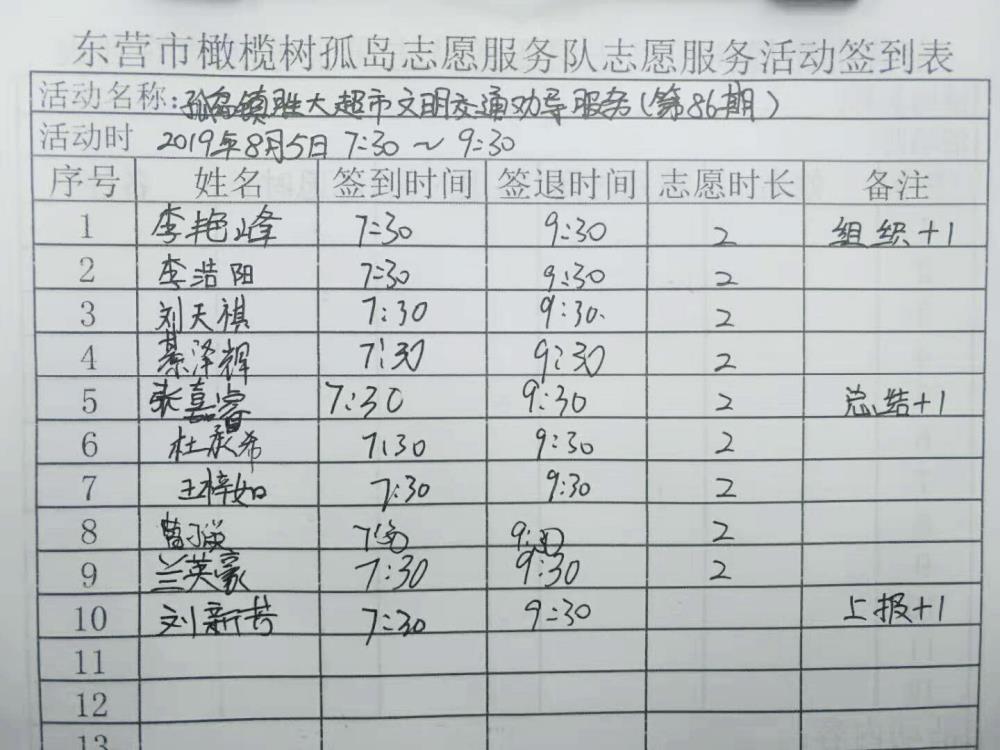 东营市橄榄树孤岛志愿服务队志愿服务活动签到表
活动名称:孤岛镇胜大超市文明交通劝导服务(第86期)
活动时 2019年8月5日 7:30～9:30
序号 姓名 签到时间 签退时间 志愿时长 备注
1 李艳峰 7:30 9:30 2 组织+1
2 李浩阳 7:30 9:30 2
3 刘天祺 7:30 9:30 2
4 綦泽辉 7:30 9:30 2
5 张嘉睿 7:30 9:30 2 总结+1
6 杜承希 7:30 9:30 2
7 王梓如 7:30 9:30 2
8 曹 9:30 2
9 兰英豪 7:30 9:30 2
10 刘新芳 7:30 9:30 上报+1
11
12
13